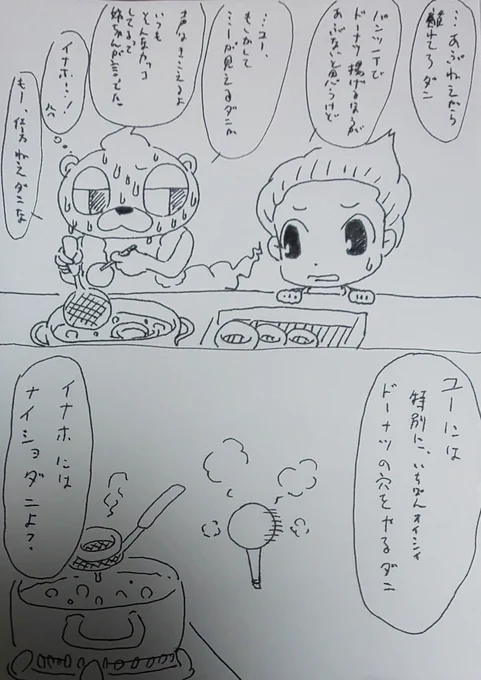 …あぶねえから
離れてろダニ
パンツ一丁で
ドーナツ揚げるほうが
あぶないと思うけど
…ユー、
もしかして
…が見えるダニか
声はきこえるよ
いつも
そんなカッコ
してるって
姉ちゃんが言ってた
イナホ…!
もー、仕方ねえダニな
ユーには
特別に、いちばんオイシイ
ドーナツの穴をやるダニ
イナホには
ナイショダニよ?